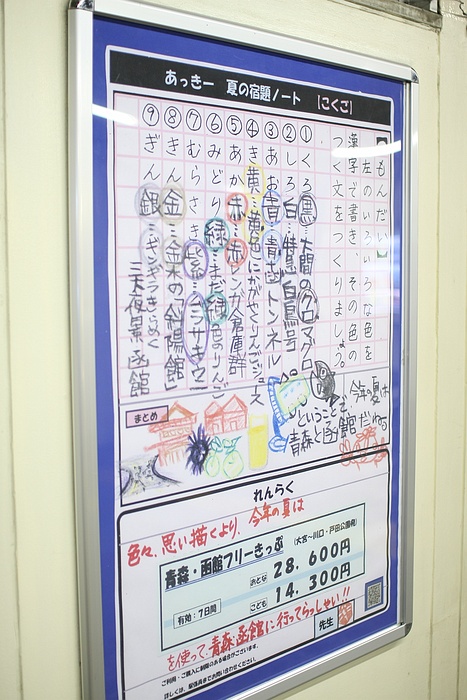 あっきー 夏の宿題ノート [こくご]
【もんだい】
左のいろいろな色を
漢字で書き、その色の
つく文をつくりましょう。
①くろ 黒…大間のクロマグロ
②しろ 白…特急白鳥号
③あお 青…青函トンネル
④き 黄…黄色にかがやくりんごジュース
⑤あか 赤…赤レンガ倉庫群
⑥みどり 緑…まだ緑色のりんご
⑦むらさき 紫…ムラサキウニ
⑧きん 金…金木の「斜陽館」
⑨ぎん 銀…ギンギラきらめく
三大夜景 函館
まとめ
今年の夏は
ということで
青森と函館だねっ
れんらく
色々、思い描くより、今年の夏は
青森・函館フリーきっぷ
(大宮〜川口・戸田公園発)
おとな 28,600円
有効:7日間
こども 14,300円
を使って、青森・函館に行ってらっしゃい!!
先生
ご利用・ご購入に制限のある場合がございます。
詳しくは、駅係員までお問い合わせください。